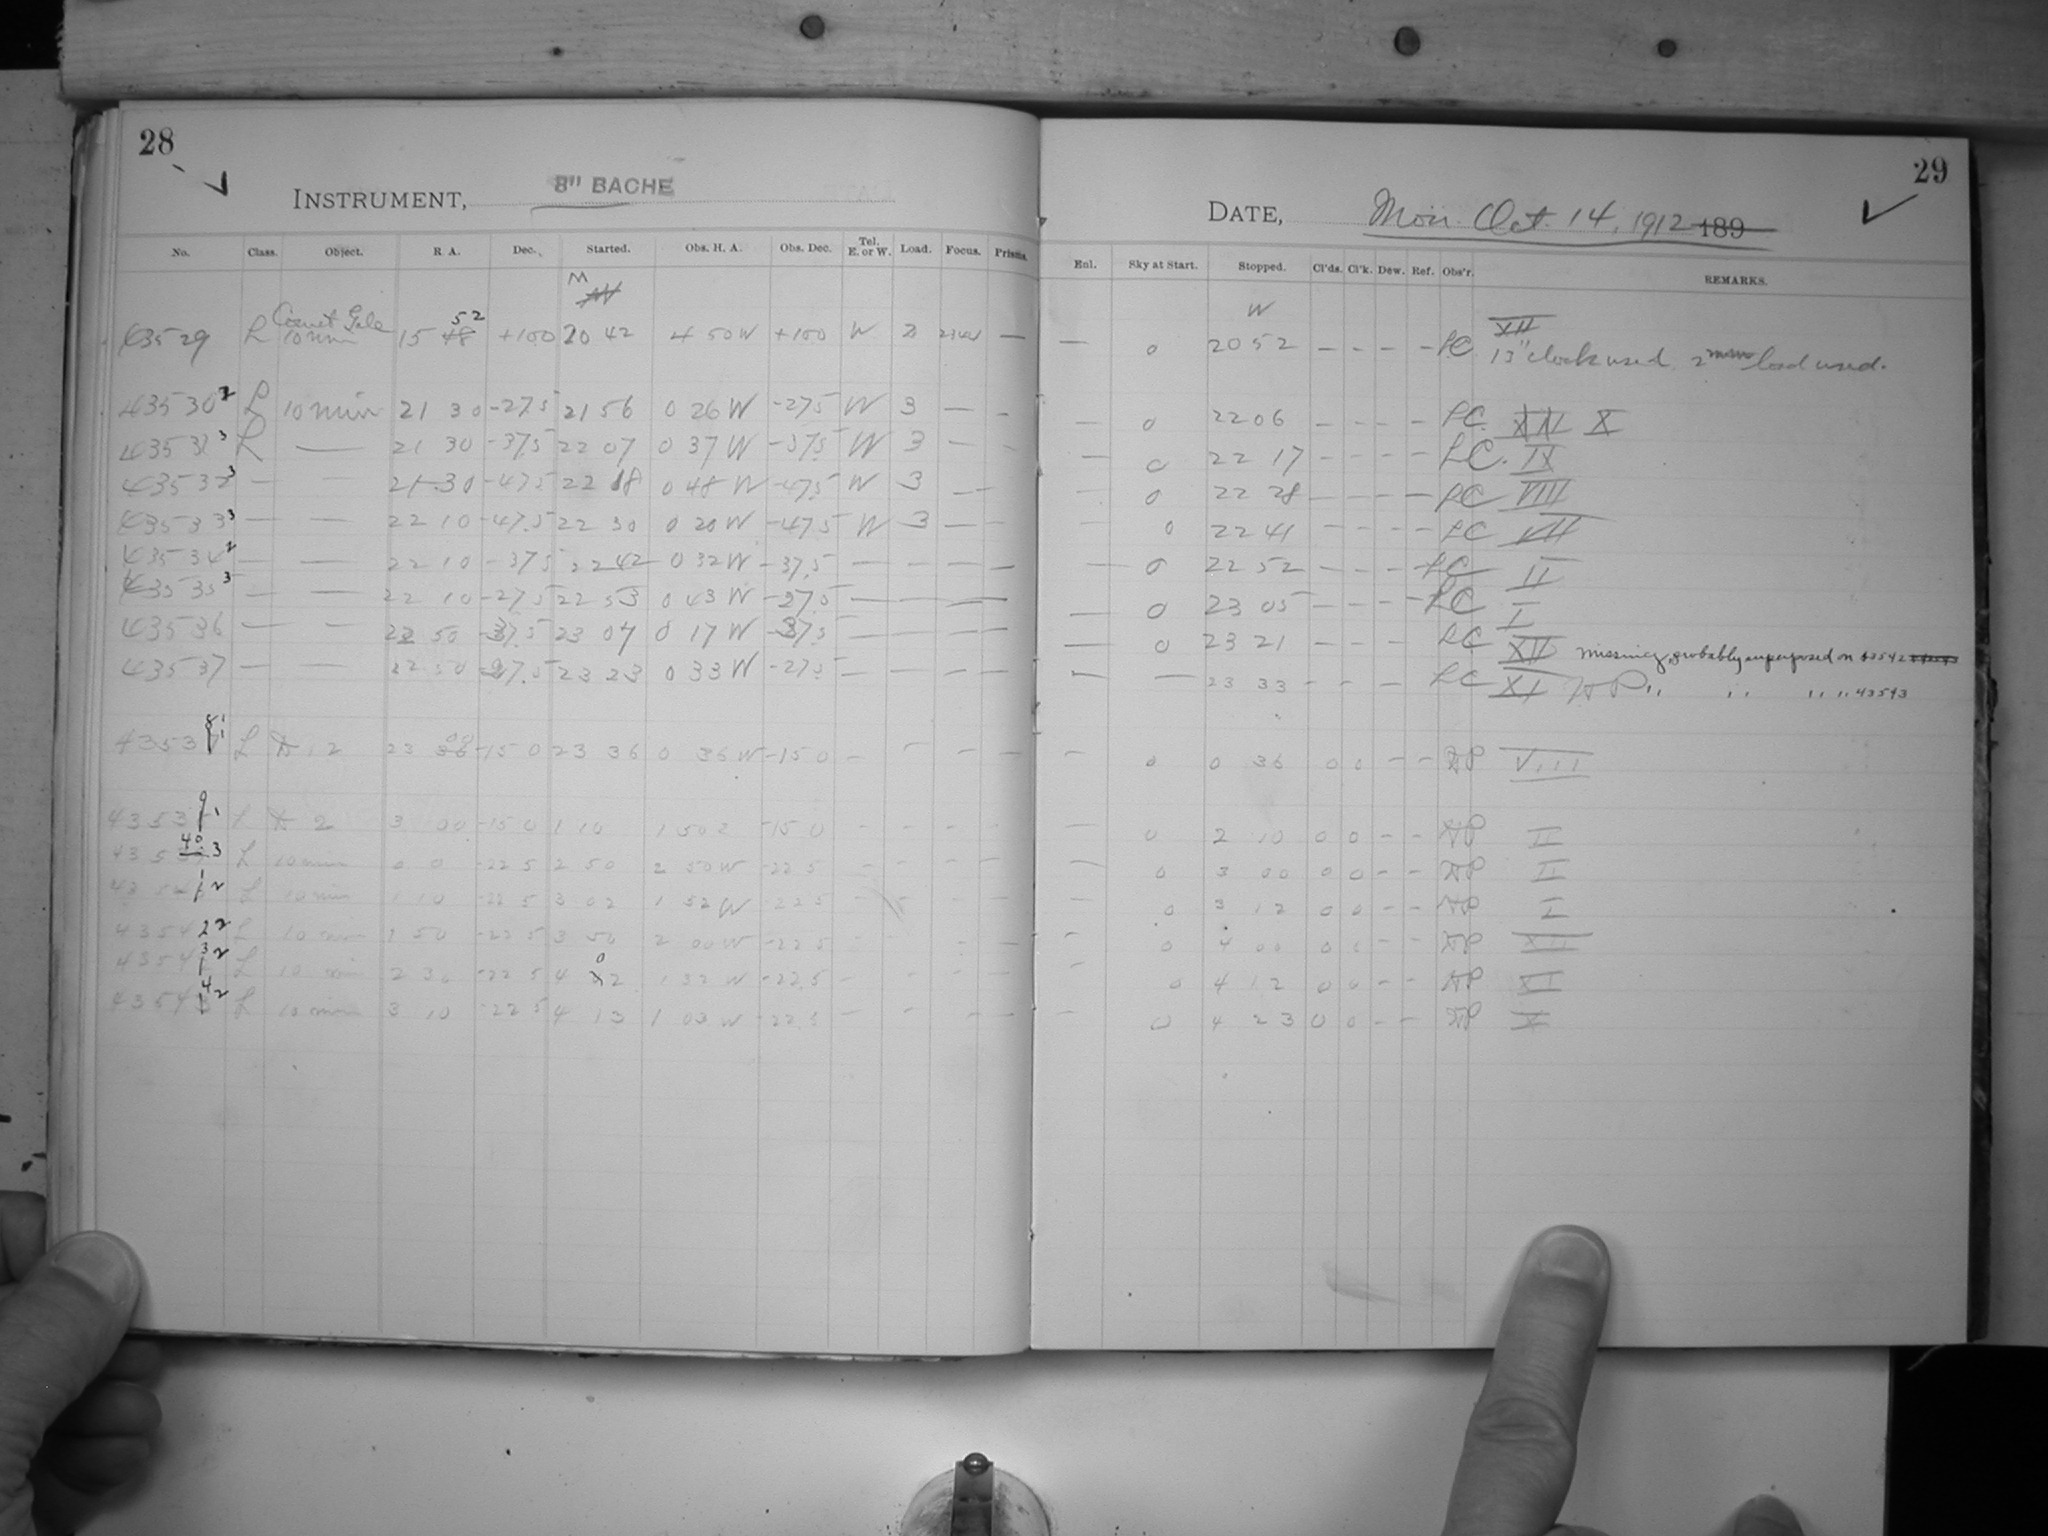 28
29
INSTRUMENT, 8" BACHE
DATE, Mon. Oct. 14, 1912 189
No. Class. Object. R. A. Dec. Started. Obs. H. A. Obs. Dec. Tel. E. or W. Load. Focus. Prisms.
Enl. Sky at Start. Stopped. Cl'ds. Cl'k. Dew. Ref. Obs'r. REMARKS.
M
W
43529 L Comet Gale 10 min 15 48 52 +100 20 42 4 50 W +100 W 2 — — 0 20 52 — — — — LC XII
13" clock used. 2 load used.
43530 2 L 10 min 21 30 -27.5 21 56 0 26 W -27.5 W 3 — — — 0 22 06 — — — — LC X
43531 3 L — 21 30 -37.5 22 07 0 37 W -37.5 W 3 — — — 0 22 17 — — — — LC. IX
43532 3 — — 21 30 -47.5 22 18 0 48 W -47.5 W 3 — — — 0 22 28 — — — — LC VIII
43533 3 — — 22 10 -47.5 22 30 0 20 W -47.5 W 3 — — — 0 22 41 — — — — LC VII
43534 2 — — 22 10 -37.5 22 42 0 32 W -37.5 — — — — — 0 22 52 — — — — LC II
43535 3 — — 22 10 -27.5 22 53 0 43 W -27.5 — — — — — 0 23 05 — — — — LC I
43536 — — 22 50 -37.5 23 07 0 17 W -37.5 — — — — — 0 23 21 — — — LC XII missing, probably superposed on 43542
43537 — — 22 50 -27.5 23 23 0 33 W -27.5 — — — — — — 23 33 — — — LC XI HP " " " " 43543
43538 1 L 2 23 00 -15 0 23 36 0 36 W -15 0 — — — — — 0 0 36 0 0 — — HP VIII
43539 1 L 2 3 00 -15 0 1 10 1 50 -15 0 — — — — — 0 2 10 0 0 — — HP II
43540 3 L 10 min 0 0 -22 5 2 50 2 50 W -22 5 — — — — — 0 3 00 0 0 — — HP II
43541 2 L 10 min 1 10 -22 5 3 02 1 52 W -22 5 — — — — — 0 3 12 0 0 — — HP I
43542 2 L 10 min 1 50 -22 5 3 50 2 00 W -22 5 — — — — 0 4 00 0 0 — — HP XII
43543 2 L 10 min 2 30 -22 5 4 02 1 32 W -22.5 — — — — — 0 4 12 0 0 — — HP XI
43544 2 L 10 min 3 10 -22 5 4 13 1 03 W -22.5 — — — — — 0 4 23 0 0 — — HP X